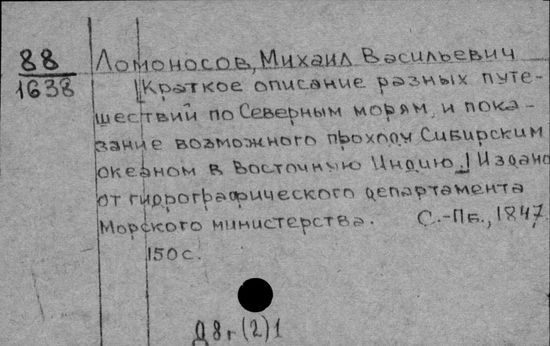 88
1638
Ломоносов, Михаил Васильевич
[Краткое описание разных путе-
шествий по Северным морям, и пока-
зание возможного проходу Сибирским
океаном в Восточную Индию.] Издано
от гидрографического департамента
Морского министерства. С.-Пб., 1847.
150 с.
Д8г(2)1